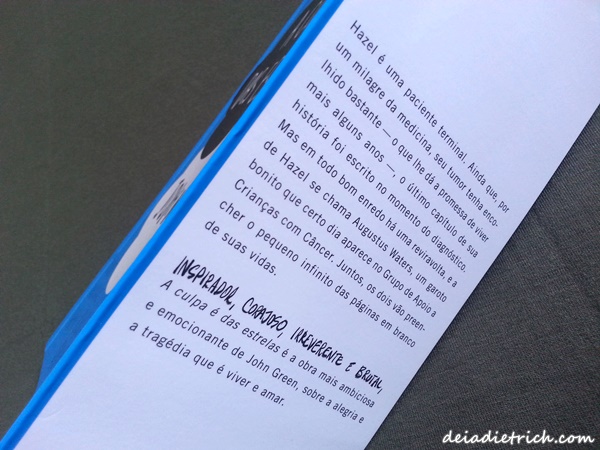 Hazel é uma paciente terminal. Ainda que, por
um milagre da medicina, seu tumor tenha enco-
lhido bastante — o que lhe dá a promessa de viver
mais alguns anos —, o último capítulo de sua
história foi escrito no momento do diagnóstico.
Mas em todo bom enredo há uma reviravolta, e a
de Hazel se chama Augustus Waters, um garoto
bonito que certo dia aparece no Grupo de Apoio a
Crianças com Câncer. Juntos, os dois vão preen-
cher o pequeno infinito das páginas em branco
de suas vidas.
INSPIRADOR, CORAJOSO, IRREVERENTE E BRUTAL,
A culpa é das estrelas é a obra mais ambiciosa
e emocionante de John Green, sobre a alegria e
a tragédia que é viver e amar.
deiadietrich.com